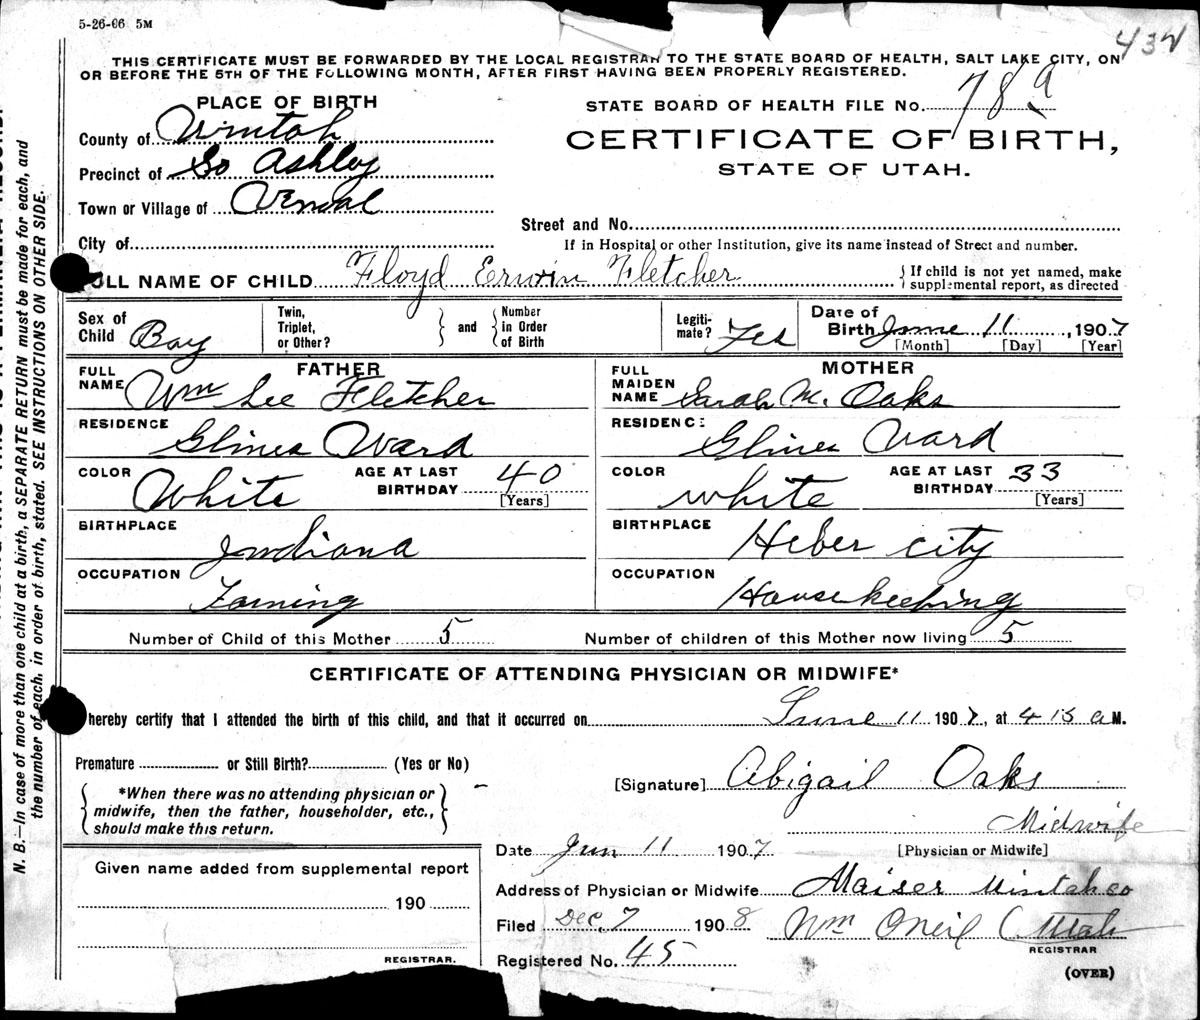 5-26-06 5M
432
THIS CERTIFICATE MUST BE FORWARDED BY THE LOCAL REGISTRAR TO THE STATE BOARD OF HEALTH, SALT LAKE CITY, ON
OR BEFORE THE 5TH OF THE FOLLOWING MONTH, AFTER FIRST HAVING BEEN PROPERLY REGISTERED.
PLACE OF BIRTH
County of Uintah
Precinct of So Ashley
Town or Village of Vernal
City of
STATE BOARD OF HEALTH FILE No. 789
CERTIFICATE OF BIRTH,
STATE OF UTAH.
Street and No.
If in Hospital or other Institution, give its name instead of Street and number.
FULL NAME OF CHILD Floyd Erwin Fletcher { If child is not yet named, make
supplemental report, as directed
Sex of Child Boy
Twin, Triplet, or Other? } and { Number in Order of Birth
Legiti-mate? Yes
Date of Birth June 11, 1907
[Month] [Day] [Year]
FATHER
FULL NAME Wm Lee Fletcher
RESIDENCE Glines Ward
COLOR White AGE AT LAST BIRTHDAY 40
[Years]
BIRTHPLACE Indiana
OCCUPATION Farming
MOTHER
FULL MAIDEN NAME Sarah M. Oaks
RESIDENCE Glines Ward
COLOR white AGE AT LAST BIRTHDAY 33
[Years]
BIRTHPLACE Heber city
OCCUPATION Housekeeping
Number of Child of this Mother 5 Number of children of this Mother now living 5
CERTIFICATE OF ATTENDING PHYSICIAN OR MIDWIFE*
hereby certify that I attended the birth of this child, and that it occurred on June 11 1907, at 4 15 a M.
Premature or Still Birth? (Yes or No)
{ *When there was no attending physician or
midwife, then the father, householder, etc.,
should make this return. }
[Signature] Abigail Oaks
Midwife
[Physician or Midwife]
Date Jun 11 1907
Address of Physician or Midwife Maiser Uintah co
Utah
Filed Dec 7 1908 Wm Oneil
REGISTRAR
Registered No. 45
(OVER)
Given name added from supplemental report
190
REGISTRAR.
N. B.—In case of more than one child at a birth, a SEPARATE RETURN must be made for each, and
the number of each, in order of birth, stated. SEE INSTRUCTIONS ON OTHER SIDE.